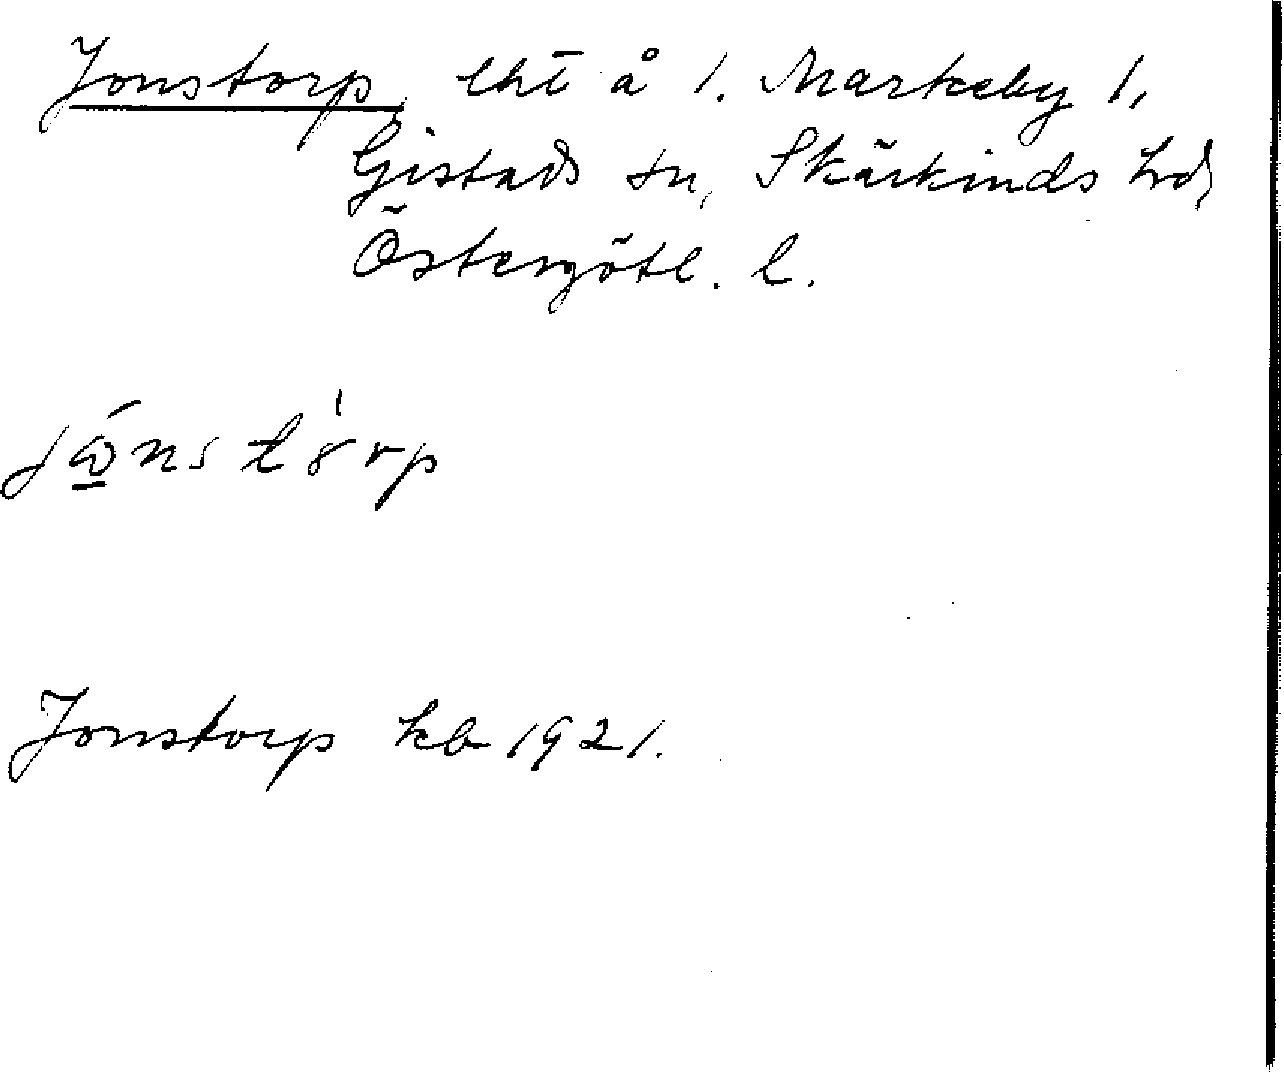 Jonstorp, lht å 1. Markeby 1,
Gistads sn, Skärkinds hd,
Östergötl. l.
Jonstorp kb 1921.